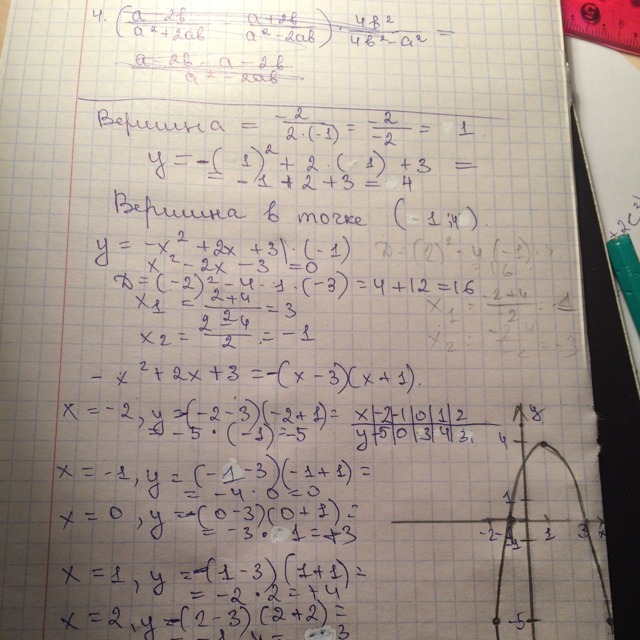 4. (a-2b/a²+2ab - a+2b/a²-2ab) · 4b²/4b²-a² =
a-2b-a-2b/a²-2ab
Вершина = -2/2·(-1) = -2/-2 = 1.
y = -(1)² + 2·(1) + 3 =
= -1 + 2 + 3 = 4
Вершина в точке (1;4).
y = -x² + 2x + 3 | ·(-1)
x² - 2x - 3 = 0
D = (-2)² - 4·1·(-3) = 4 + 12 = 16
x1 = 2+4/2 = 3
x2 = 2-4/2 = -1
-x² + 2x + 3 = -(x-3)(x+1).
x = -2, y = -(-2-3)(-2+1) =
= -5·(-1) = -5
x -2 -1 0 1 2
y -5 0 3 4 3
x = -1, y = (-1-3)(-1+1) =
= -4·0 = 0
x = 0, y = -(0-3)(0+1) =
= -3·1 = +3
x = 1, y = -(1-3)(1+1) =
= -2·2 = +4
x = 2, y = -(2-3)(2+2) =
y
4
1
-2
-1
1
3
-5